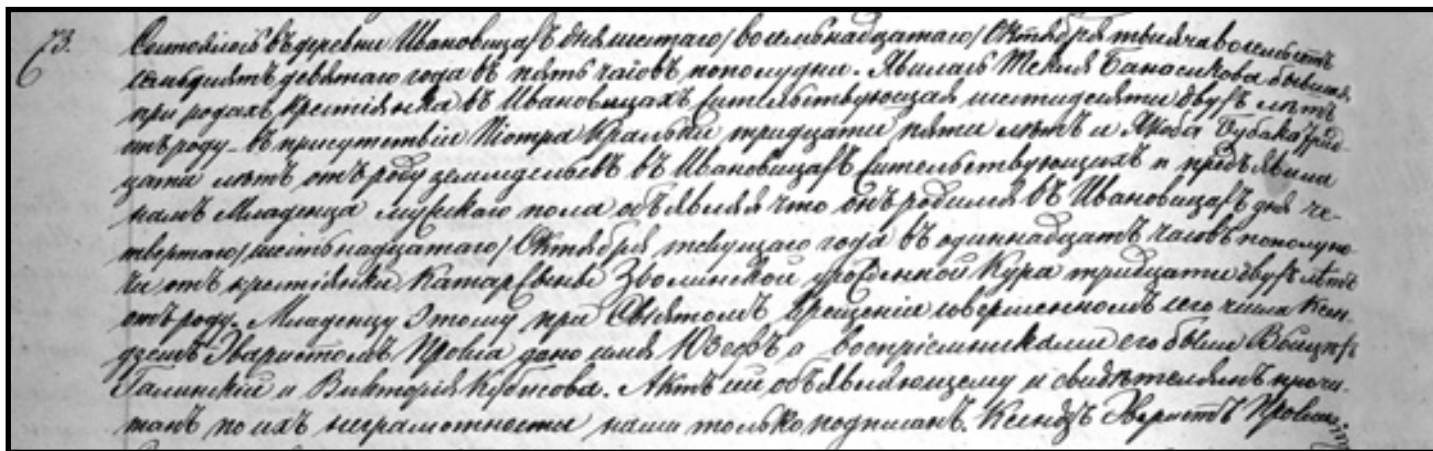 73. Состоялось въ деревни Ивановицахъ дня шестаго /восемьнадцатаго/ Октября тысяча восемьсотъ
семьдесятъ девятаго года въ пять часовъ пополудни. Явилась Текля Банасикова бывшая
при родахъ крестіянка въ Ивановицахъ жительствующая шестидесяти двухъ лѣтъ
отъ роду въ присутствіи Піотра Кральки тридцати пяти лѣтъ и Якоба Бубака трид-
цати лѣтъ отъ роду земледельевъ въ Ивановицахъ жительствующихъ и предъявила
намъ Младенца мужскаго пола объявляя что онъ родился въ Ивановицахъ дня че-
твертаго /шестьнадцатаго/ Октября текущаго года въ одиннадцатъ часовъ пополуно-
чи отъ крестіянки Катаржины Зволинской урожденной Кура тридцати двухъ лѣтъ
отъ роду. Младенцу этому при Святомъ Крещеніи совершенномъ сего числа Ксен-
дземъ Эваристомъ дано имя Юзефъ а воспріемниками его были Войцѣхъ
Галинскій и Викторія Кубисова. Актъ сей объявляющему и свидѣтелямъ прочи-
танъ по ихъ неграмотности нами только подписанъ. Ксендзъ Эваристъ